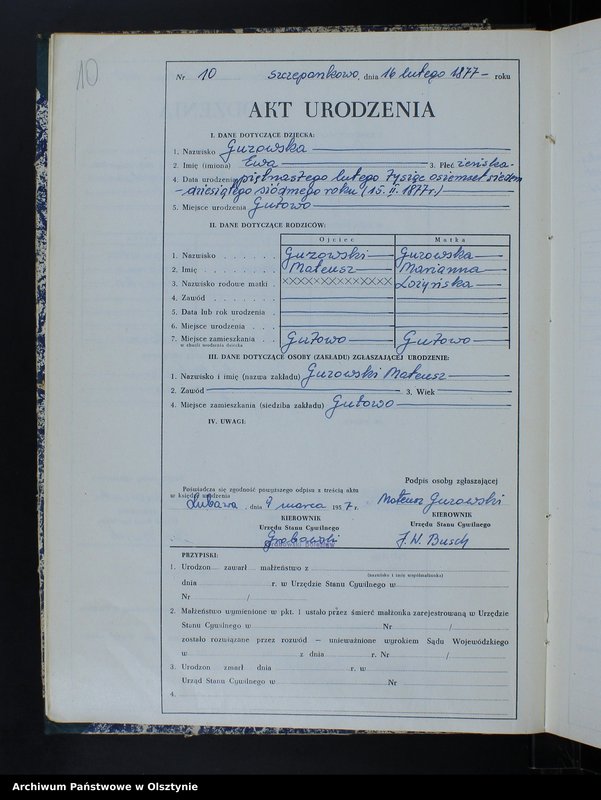 10
Nr 10 Szczepankowo, dnia 16 lutego 1877 – roku
AKT URODZENIA
I. DANE DOTYCZĄCE DZIECKA:
1. Nazwisko Guzowska
2. Imię (imiona) Ewa 3. Płeć żeńska-
4. Data urodzenia piętnastego lutego tysiąc osiemset siedem
-dziesiątego siódmego roku (15. II. 1877r.)
5. Miejsce urodzenia Gutowo
II. DANE DOTYCZĄCE RODZICÓW:
Ojciec Matka
1. Nazwisko Guzowski Guzowska
2. Imię Mateusz Marianna
3. Nazwisko rodowe matki XXXXXXXXXXXXX Łożyńska
4. Zawód
5. Data lub rok urodzenia
6. Miejsce urodzenia
7. Miejsce zamieszkania Gutowo Gutowo
w chwili urodzenia dziecka
III. DANE DOTYCZĄCE OSOBY (ZAKŁADU) ZGŁASZAJĄCEJ URODZENIE:
1. Nazwisko i imię (nazwa zakładu) Guzowski Mateusz
2. Zawód 3. Wiek
4. Miejsce zamieszkania (siedziba zakładu) Gutowo
IV. UWAGI:
Podpis osoby zgłaszającej
Poświadcza się zgodność powyższego odpisu z treścią aktu
w księdze urodzenia
Lubawa, dnia 9 marca 1957 r. Mateusz Guzowski
KIEROWNIK KIEROWNIK
Urzędu Stanu Cywilnego Urzędu Stanu Cywilnego
Grabowski J. W. Busch
PRZYPISKI:
1. Urodzon zawarł małżeństwo z
(nazwisko i imię współmałżonka)
dnia r. w Urzędzie Stanu Cywilnego w
Nr /
2. Małżeństwo wymienione w pkt. 1 ustało przez śmierć małżonka zarejestrowaną w Urzędzie
Stanu Cywilnego w Nr /
zostało rozwiązane przez rozwód — unieważnione wyrokiem Sądu Wojewódzkiego
w z dnia r. Nr /
3. Urodzon zmarł dnia r. w
Urząd Stanu Cywilnego w Nr
4.
Archiwum Państwowe w Olsztynie